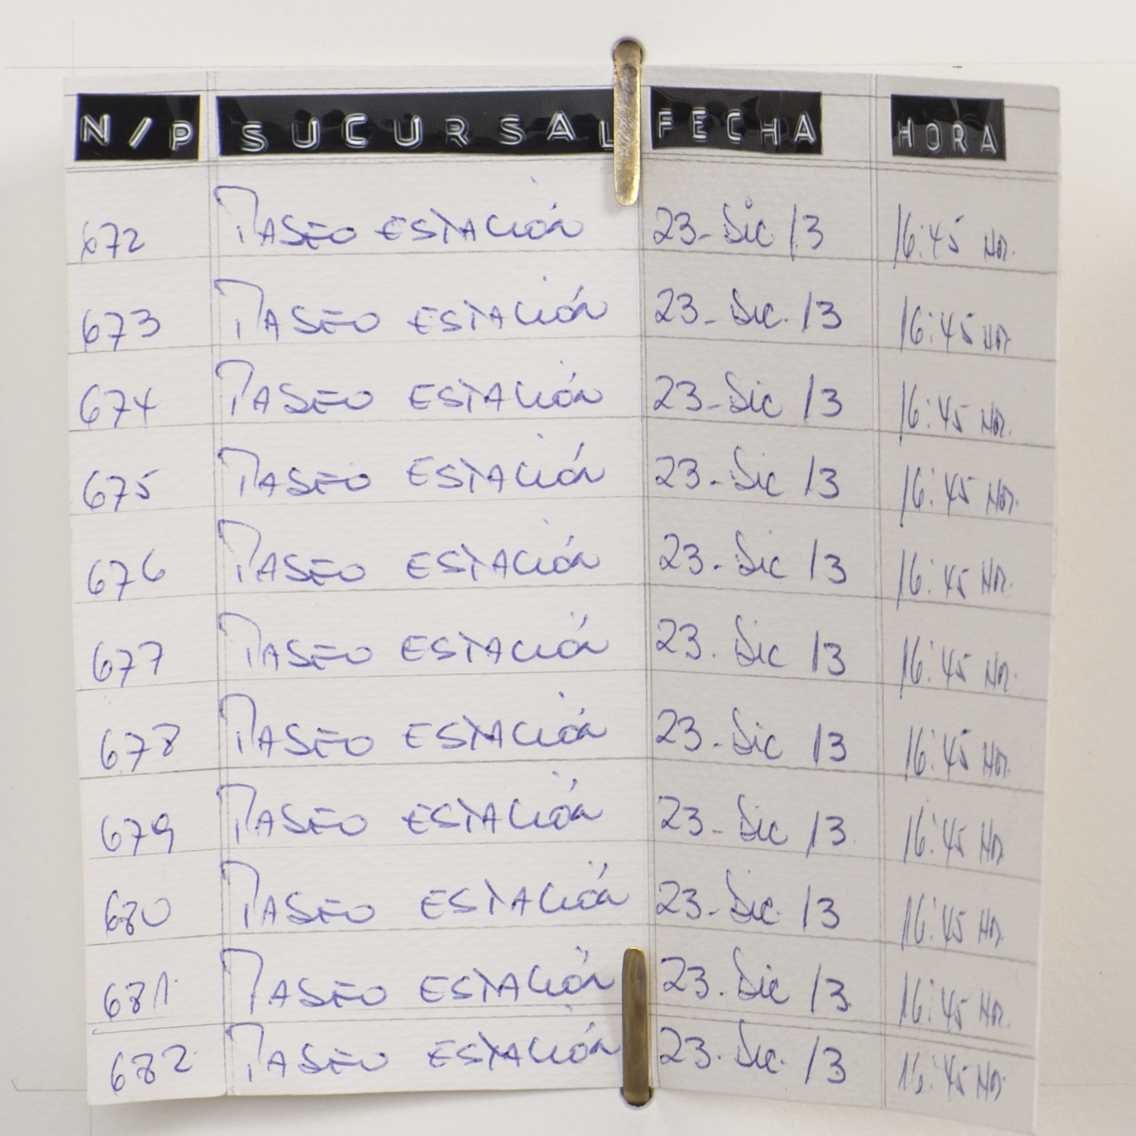 N/P SUCURSAL FECHA HORA
672 PASEO ESTACIÓN 23-Dic/13 16:45 Hor.
673 PASEO ESTACIÓN 23-Dic./13 16:45 Hor
674 PASEO ESTACIÓN 23-Dic/13 16:45 Hor.
675 PASEO ESTACIÓN 23.Dic/13 16:45 Hor.
676 PASEO ESTACIÓN 23.Dic/13 16:45 Hor.
677 PASEO ESTACIÓN 23.Dic/13 16:45 Hor.
678 PASEO ESTACIÓN 23-Dic/13 16:45 Hor.
679 PASEO ESTACIÓN 23-Dic/13 16:45 Hor
680 PASEO ESTACIÓN 23-Dic./13 16:45 Hor.
681. PASEO ESTACIÓN 23.Dic/13 16:45 Hor.
682 PASEO ESTACIÓN 23.Dic./13 16:45 Hor.